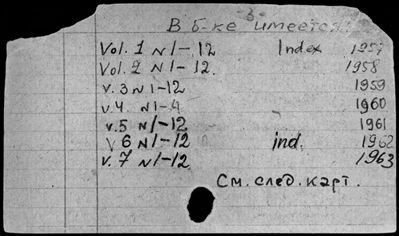 В б-ке имеется:
Vol. 1 N 1-12 Index 1957
Vol. 2 N 1-12. 1958
v. 3 N 1-12 1959
v. 4. N 1-4 1960
v. 5 N 1-12 1961
v 6 N 1-12 ind. 1962
v. 7 N 1-12 1963
См. след. карт.